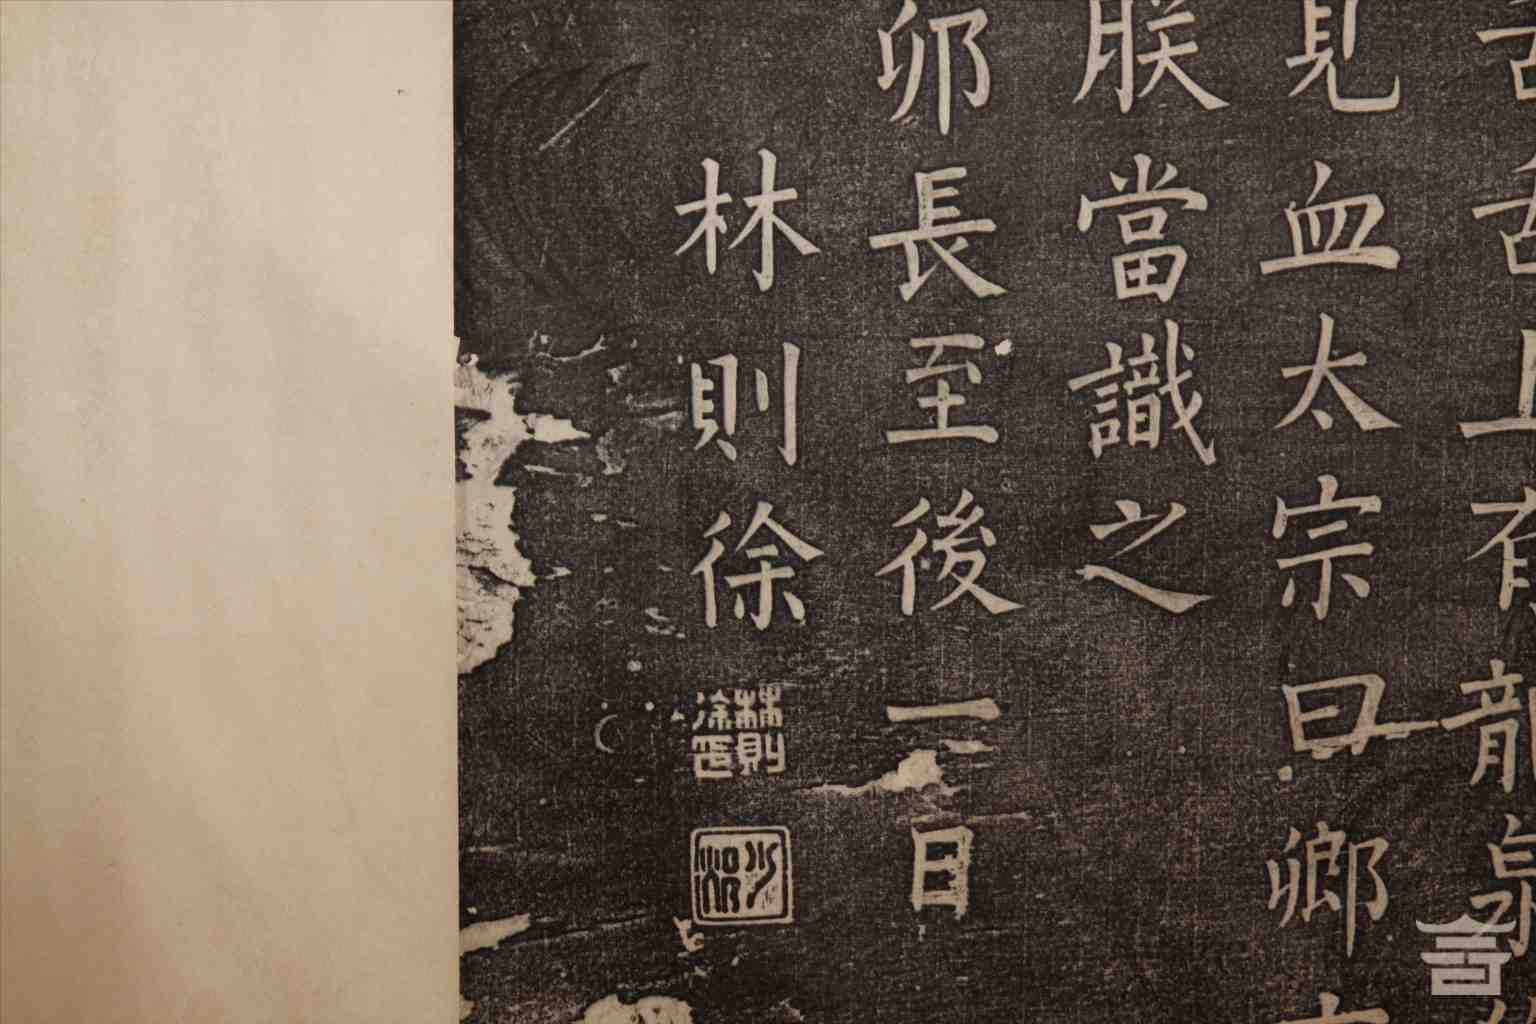 上有龍泉
見血太宗曰卿
朕當識之
卯長至後一日
林則徐
林則徐
少穆